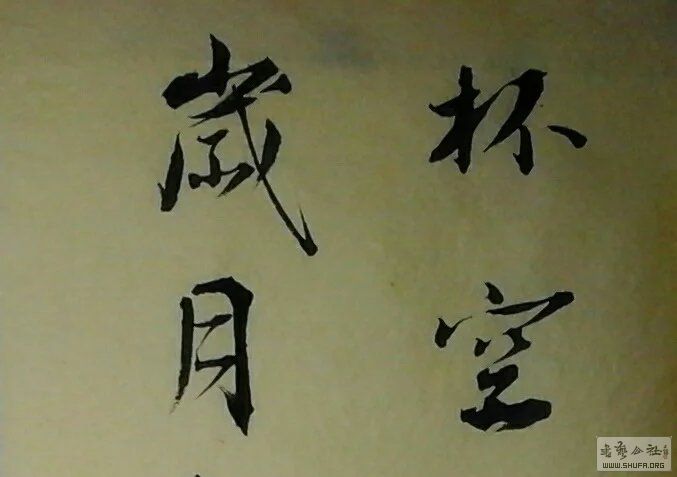 杯空
歲月
書藝公社
WWW.SHUFA.ORG